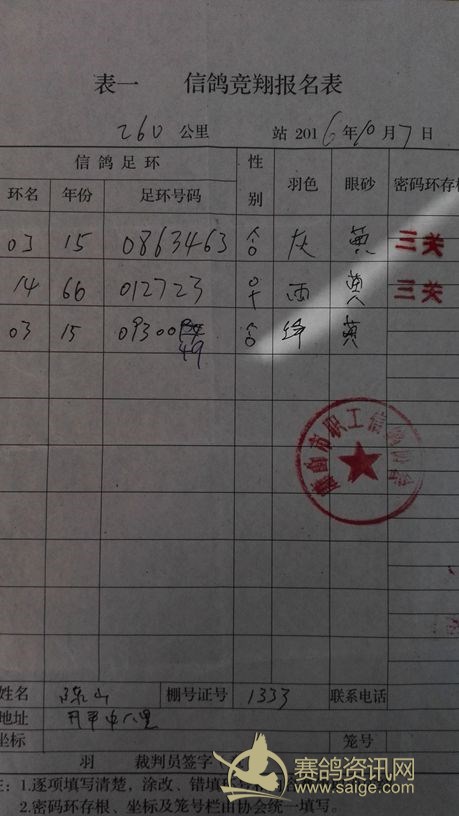 表一 信鸽竞翔报名表
260 公里 站 2016年10月7日
信鸽足环 性别 羽色 眼砂 密码环存根
环名 年份 足环号码
03 15 0863463 灰 黄 三关
14 66 012723 雨 黄 三关
03 15 09300 绛 黄
49
唐山市职工信鸽协会
姓名 山 棚号证号 1333 联系电话
地址 开平
坐标 笼号
羽 裁判员签字
注：1.逐项填写清楚，涂改、错填
2.密码环存根、坐标及笼号栏由协会统一填写。
赛鸽资讯网
www.saige.com